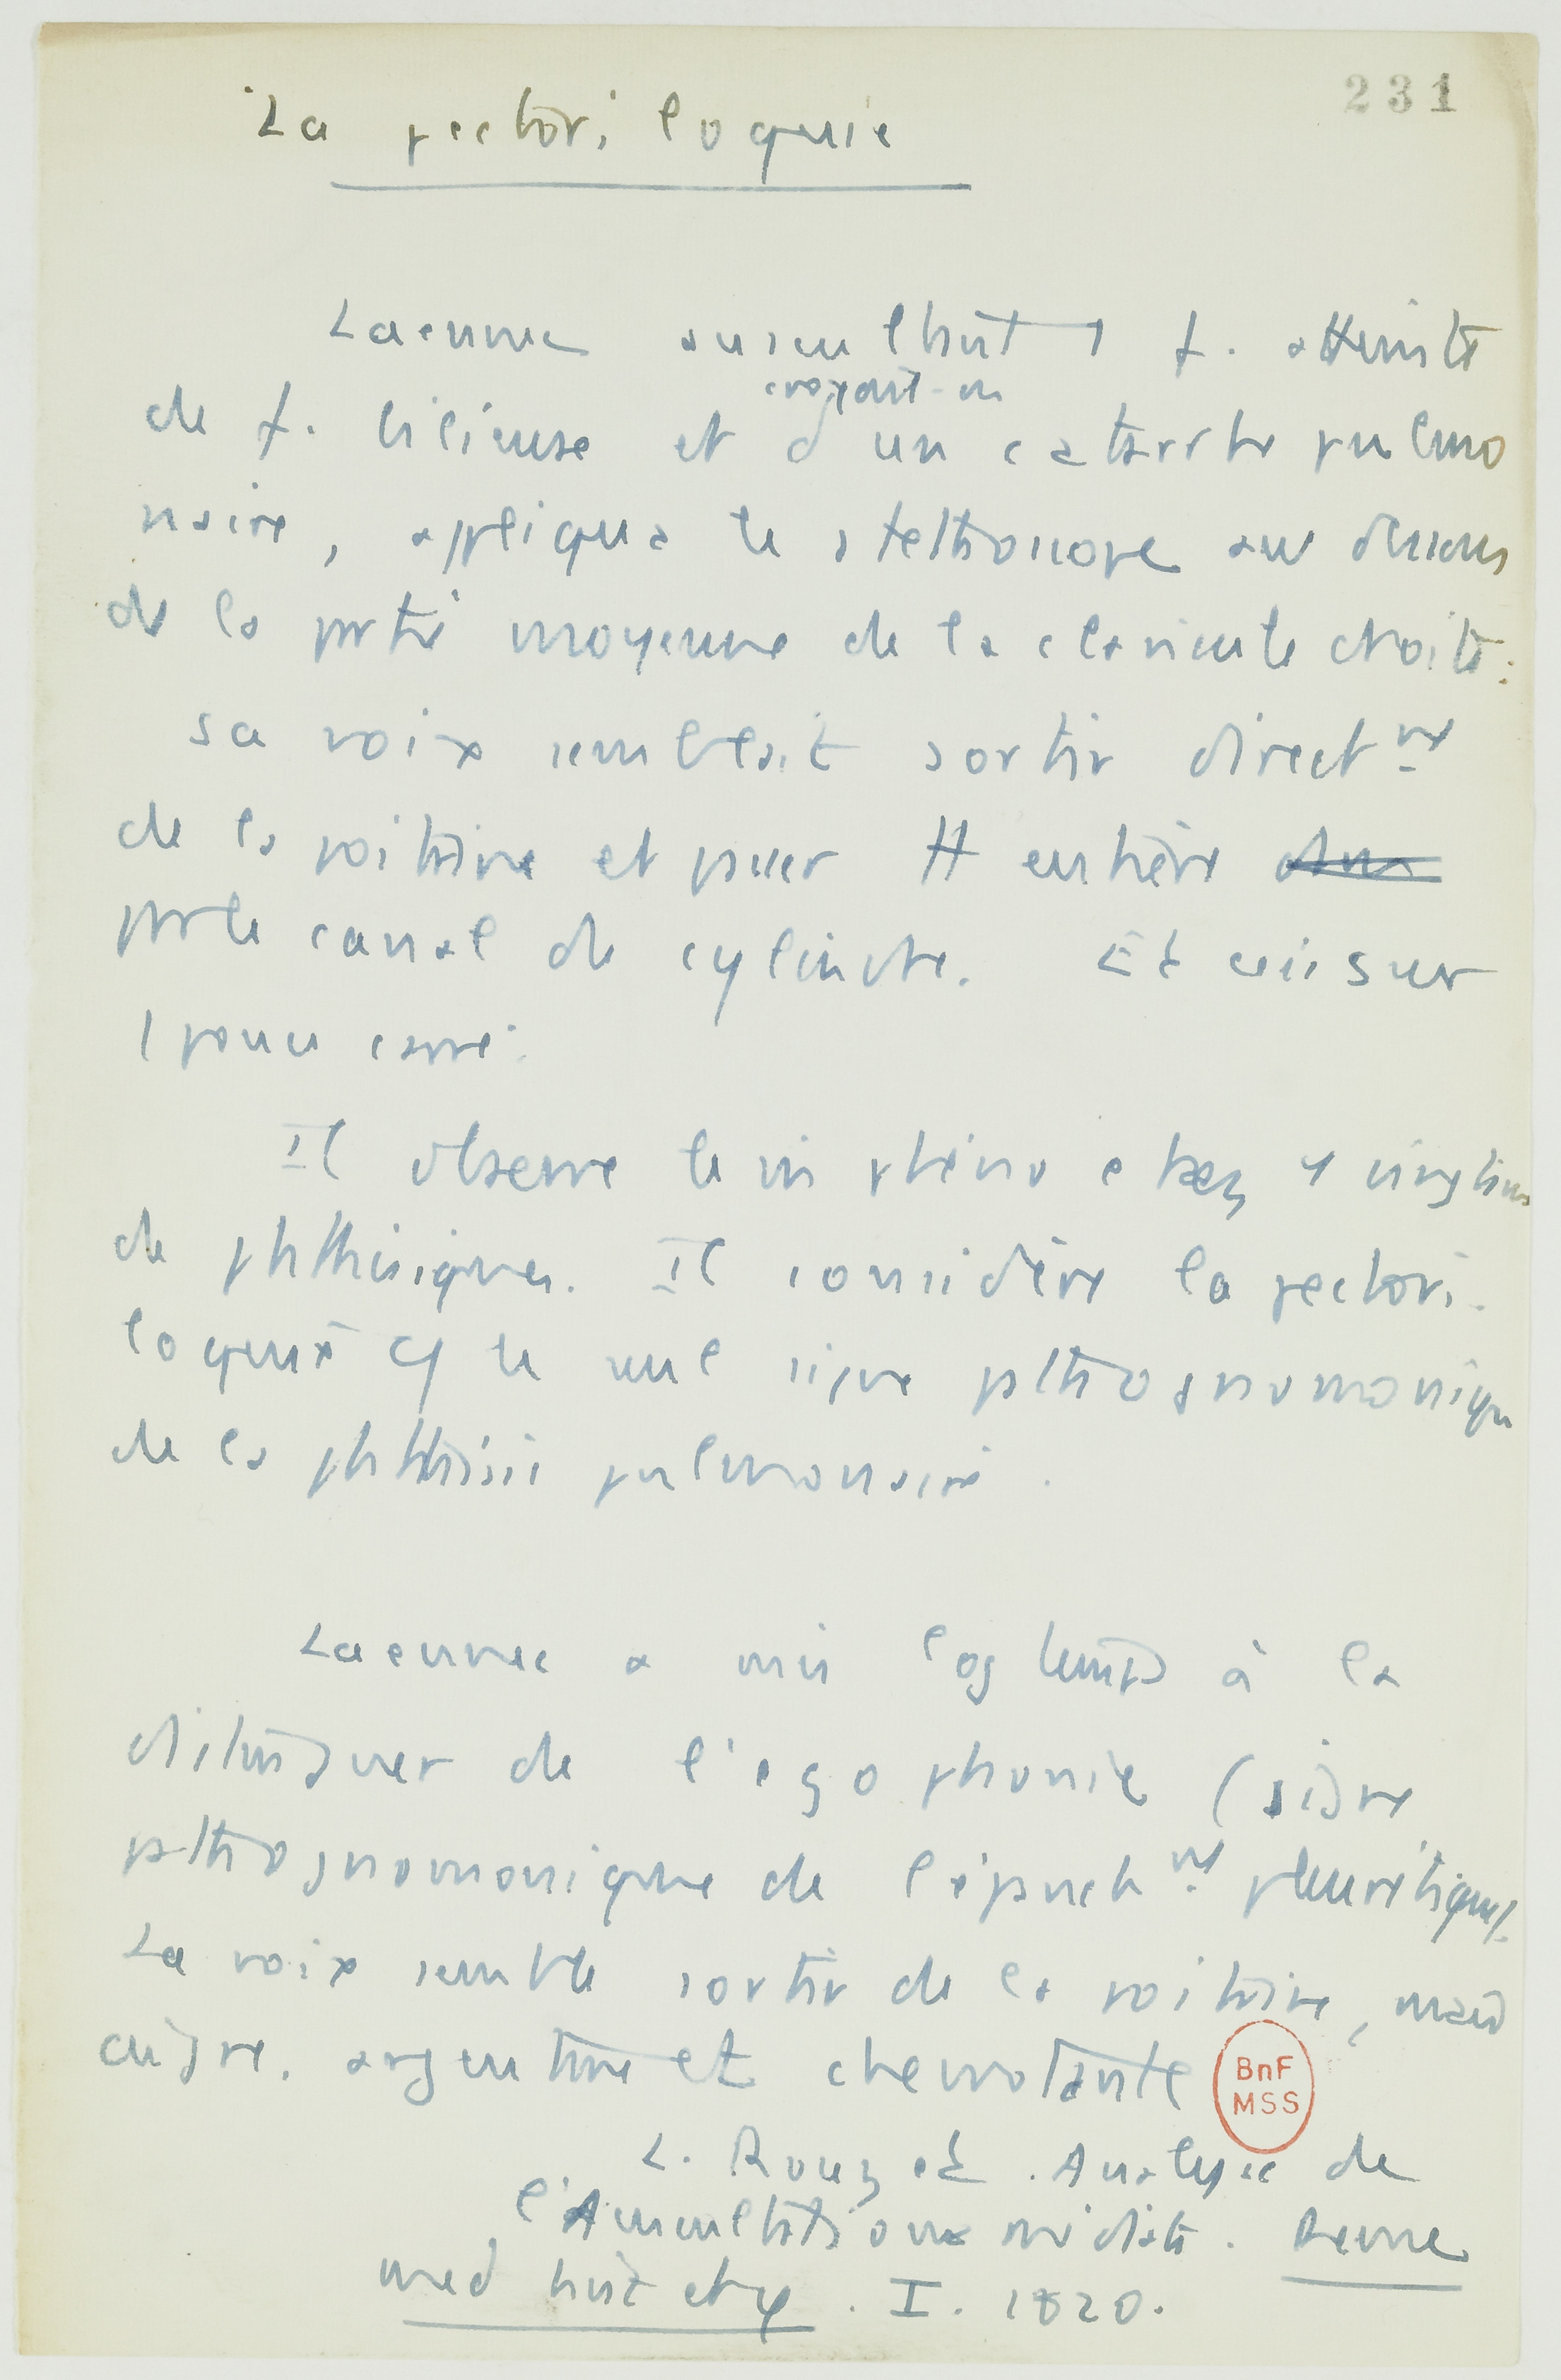 231
La pectoriloquie
Laennec auscultant 1 f. atteinte
croyait-on
de f. bilieuse et d'un catarrhe pulmo
naire, appliqua le stethoscope au dessous
de la partie moyenne de la clavicule droite :
sa voix semblait sortir direct nt
de la poitrine et passer tt entière
par le canal de cylindre. Et ceci sur
1 pouce carré.
Il observe le m phéno chez 1 vingtaine
de phthisiques. Il considère la pectori-
loquie le seul signe pathognomonique
de la phthisie pulmonaire.
Laennec a mis lgtemps à la
distinguer de l'egophonie (signe
pathognomonique de l'épancht nt pleurétique).
La voix semble sortir de la poitrine, mais
aigre, argentine et chevrotante
BnF
MSS
L. Rouzet. Analyse de
l'Auscultation médiate. Revue
med hist et φ. I. 1820.